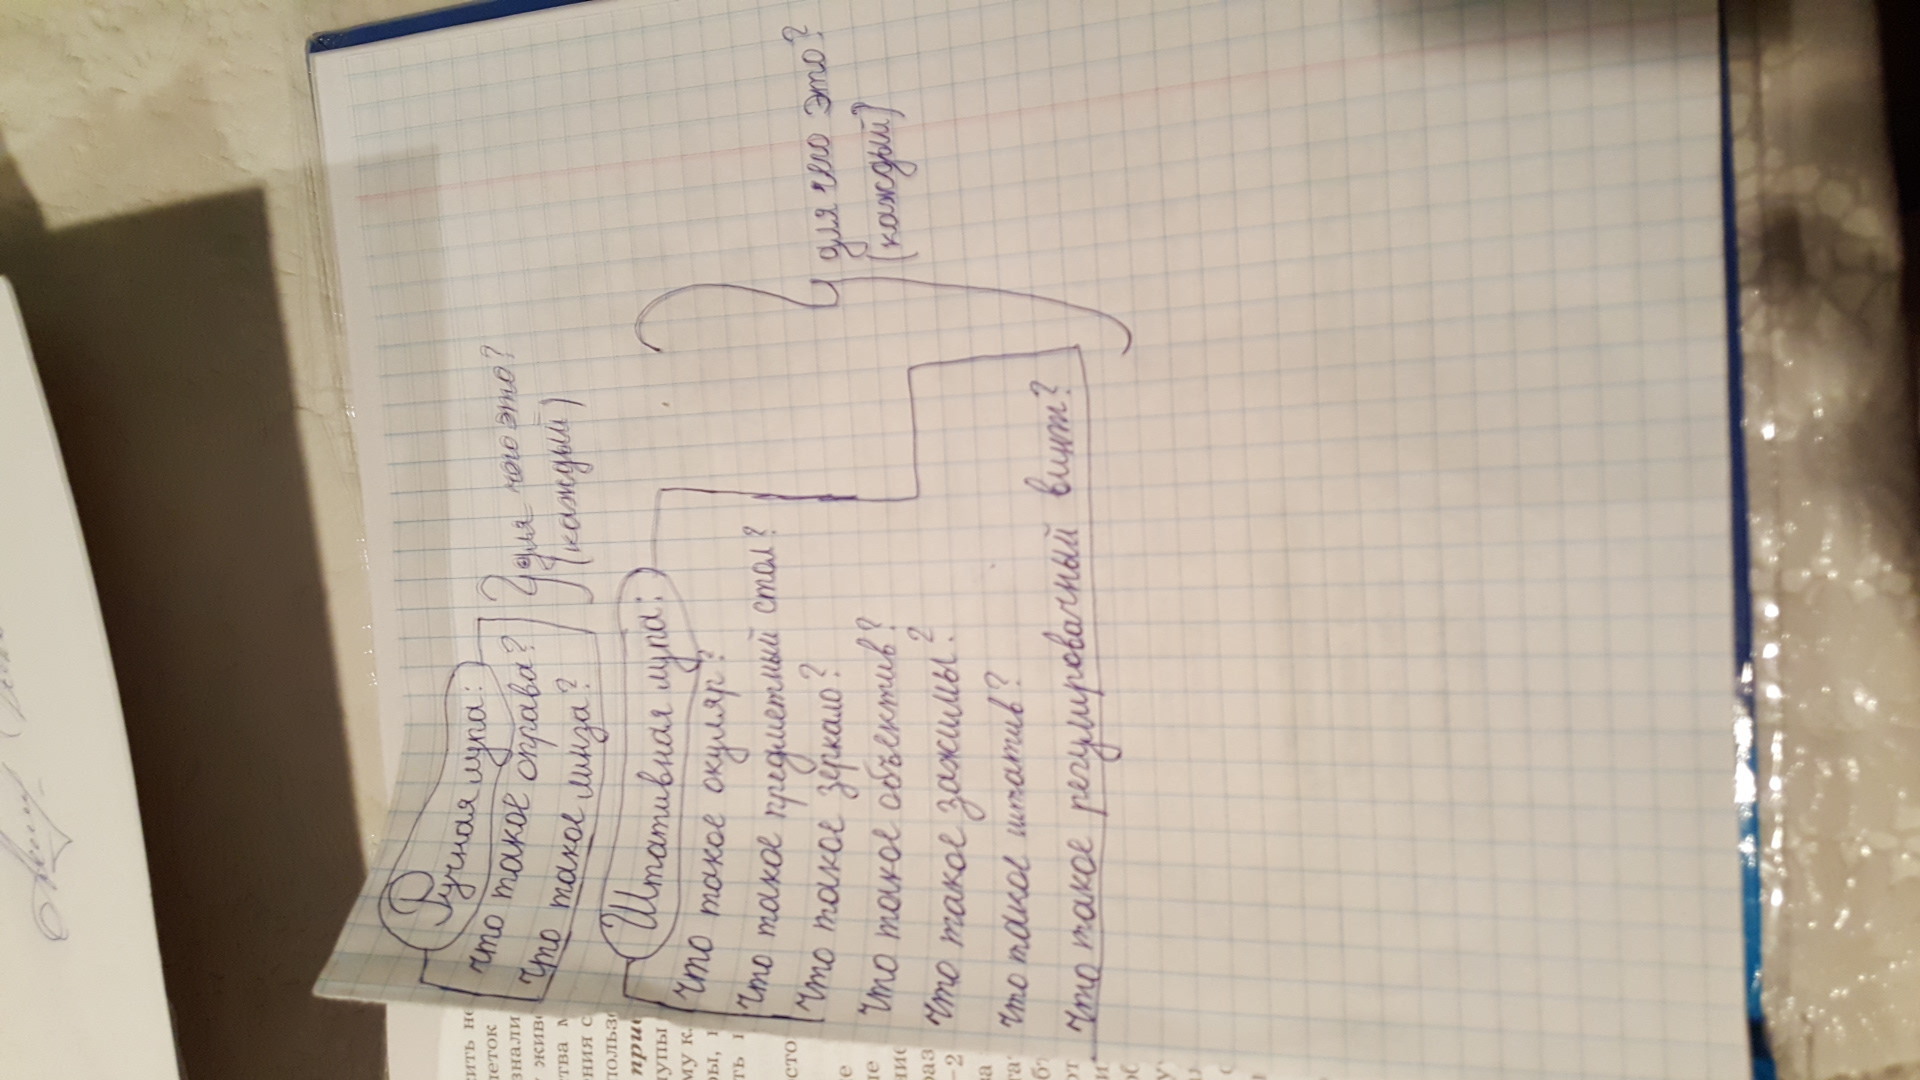 Ручная лупа:
что такое оправа?
что такое линза?
для чего это?
(каждый)
Штативная лупа:
что такое окуляр?
что такое предметный стол?
что такое зеркало?
что такое объектив?
что такое зажимы?
что такое штатив?
что такое регулировачный винт?
для чего это?
(каждый)